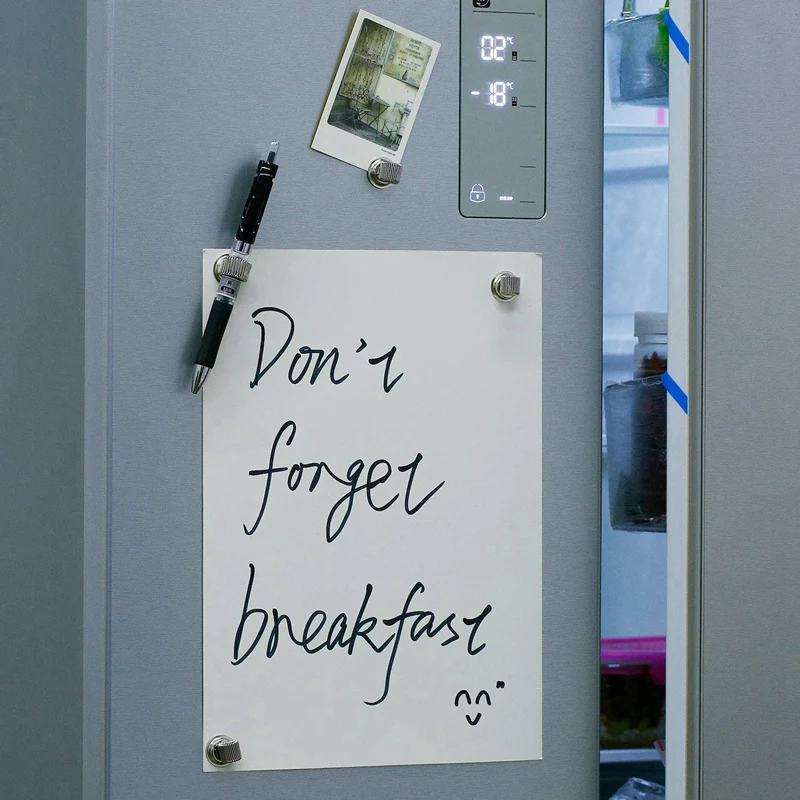 02°C
-18°C
Don't
forget
breakfast